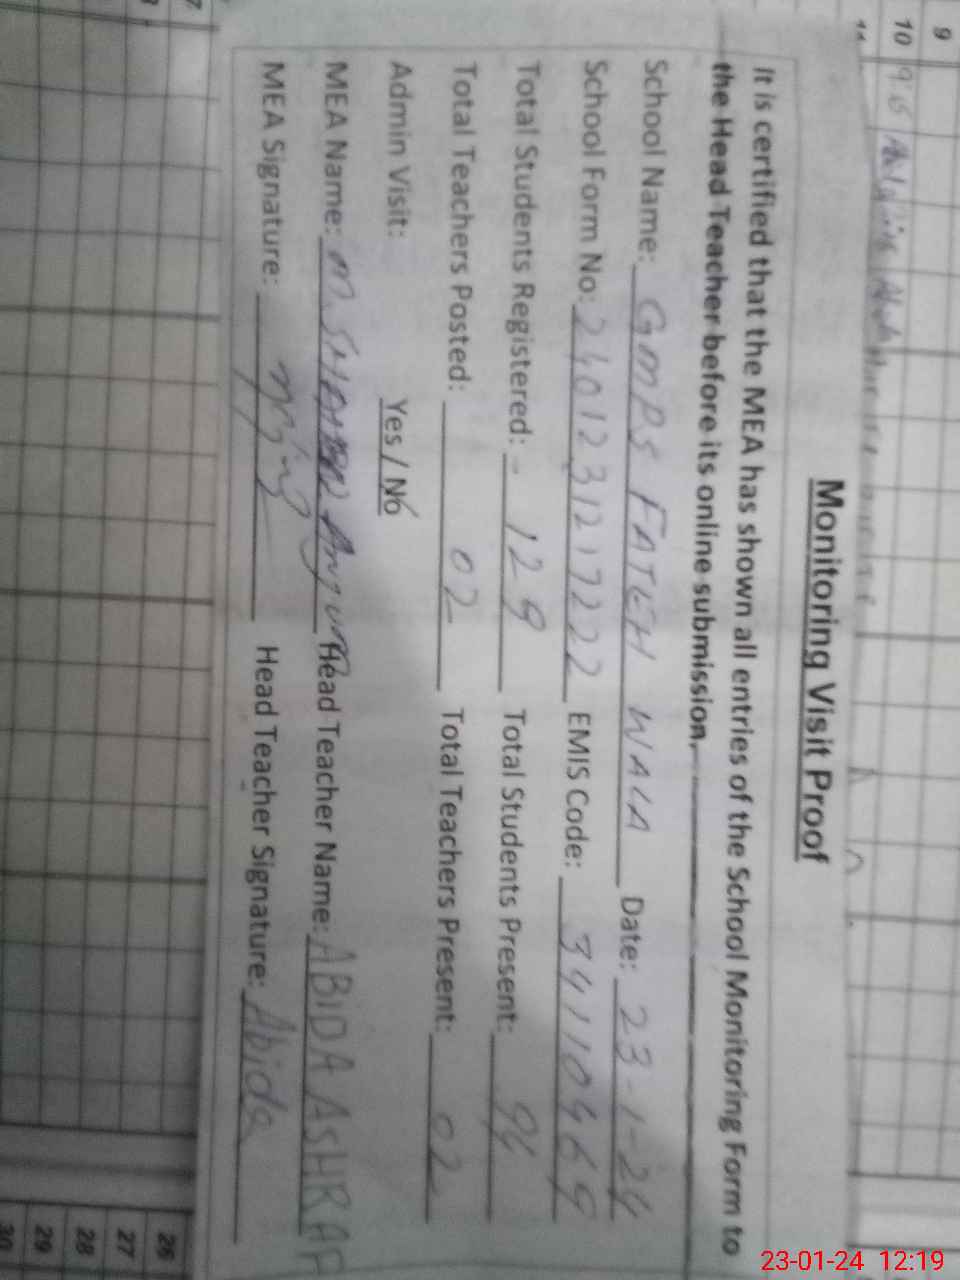 Monitoring Visit Proof
It is certified that the MEA has shown all entries of the School Monitoring Form to
the Head Teacher before its online submission.
School Name: GMPS FATEH WALA Date: 23-1-24
School Form No: 2401231217222 EMIS Code: 34110469
Total Students Registered: 129 Total Students Present: 94
Total Teachers Posted: 02 Total Teachers Present: 02
Admin Visit: Yes / No
MEA Name: M. Head Teacher Name: ABIDA ASHRAF
MEA Signature: Head Teacher Signature: Abida
9
10
11
26
27
28
29
30
23-01-24 12:19